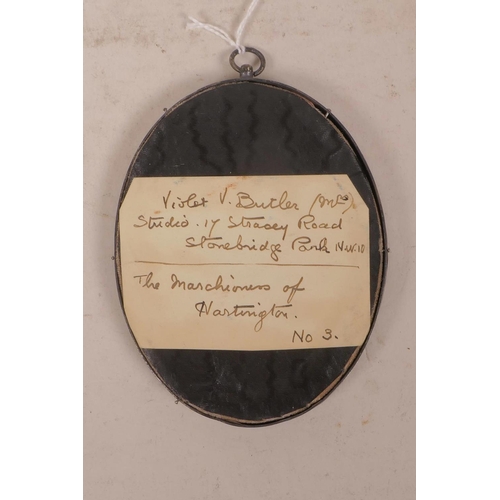 Violet V. Butler (Mrs)
Studio. 17 Stracey Road
Stonebridge Park N.W.10
The Marchioness of
Hartington.
No 3.